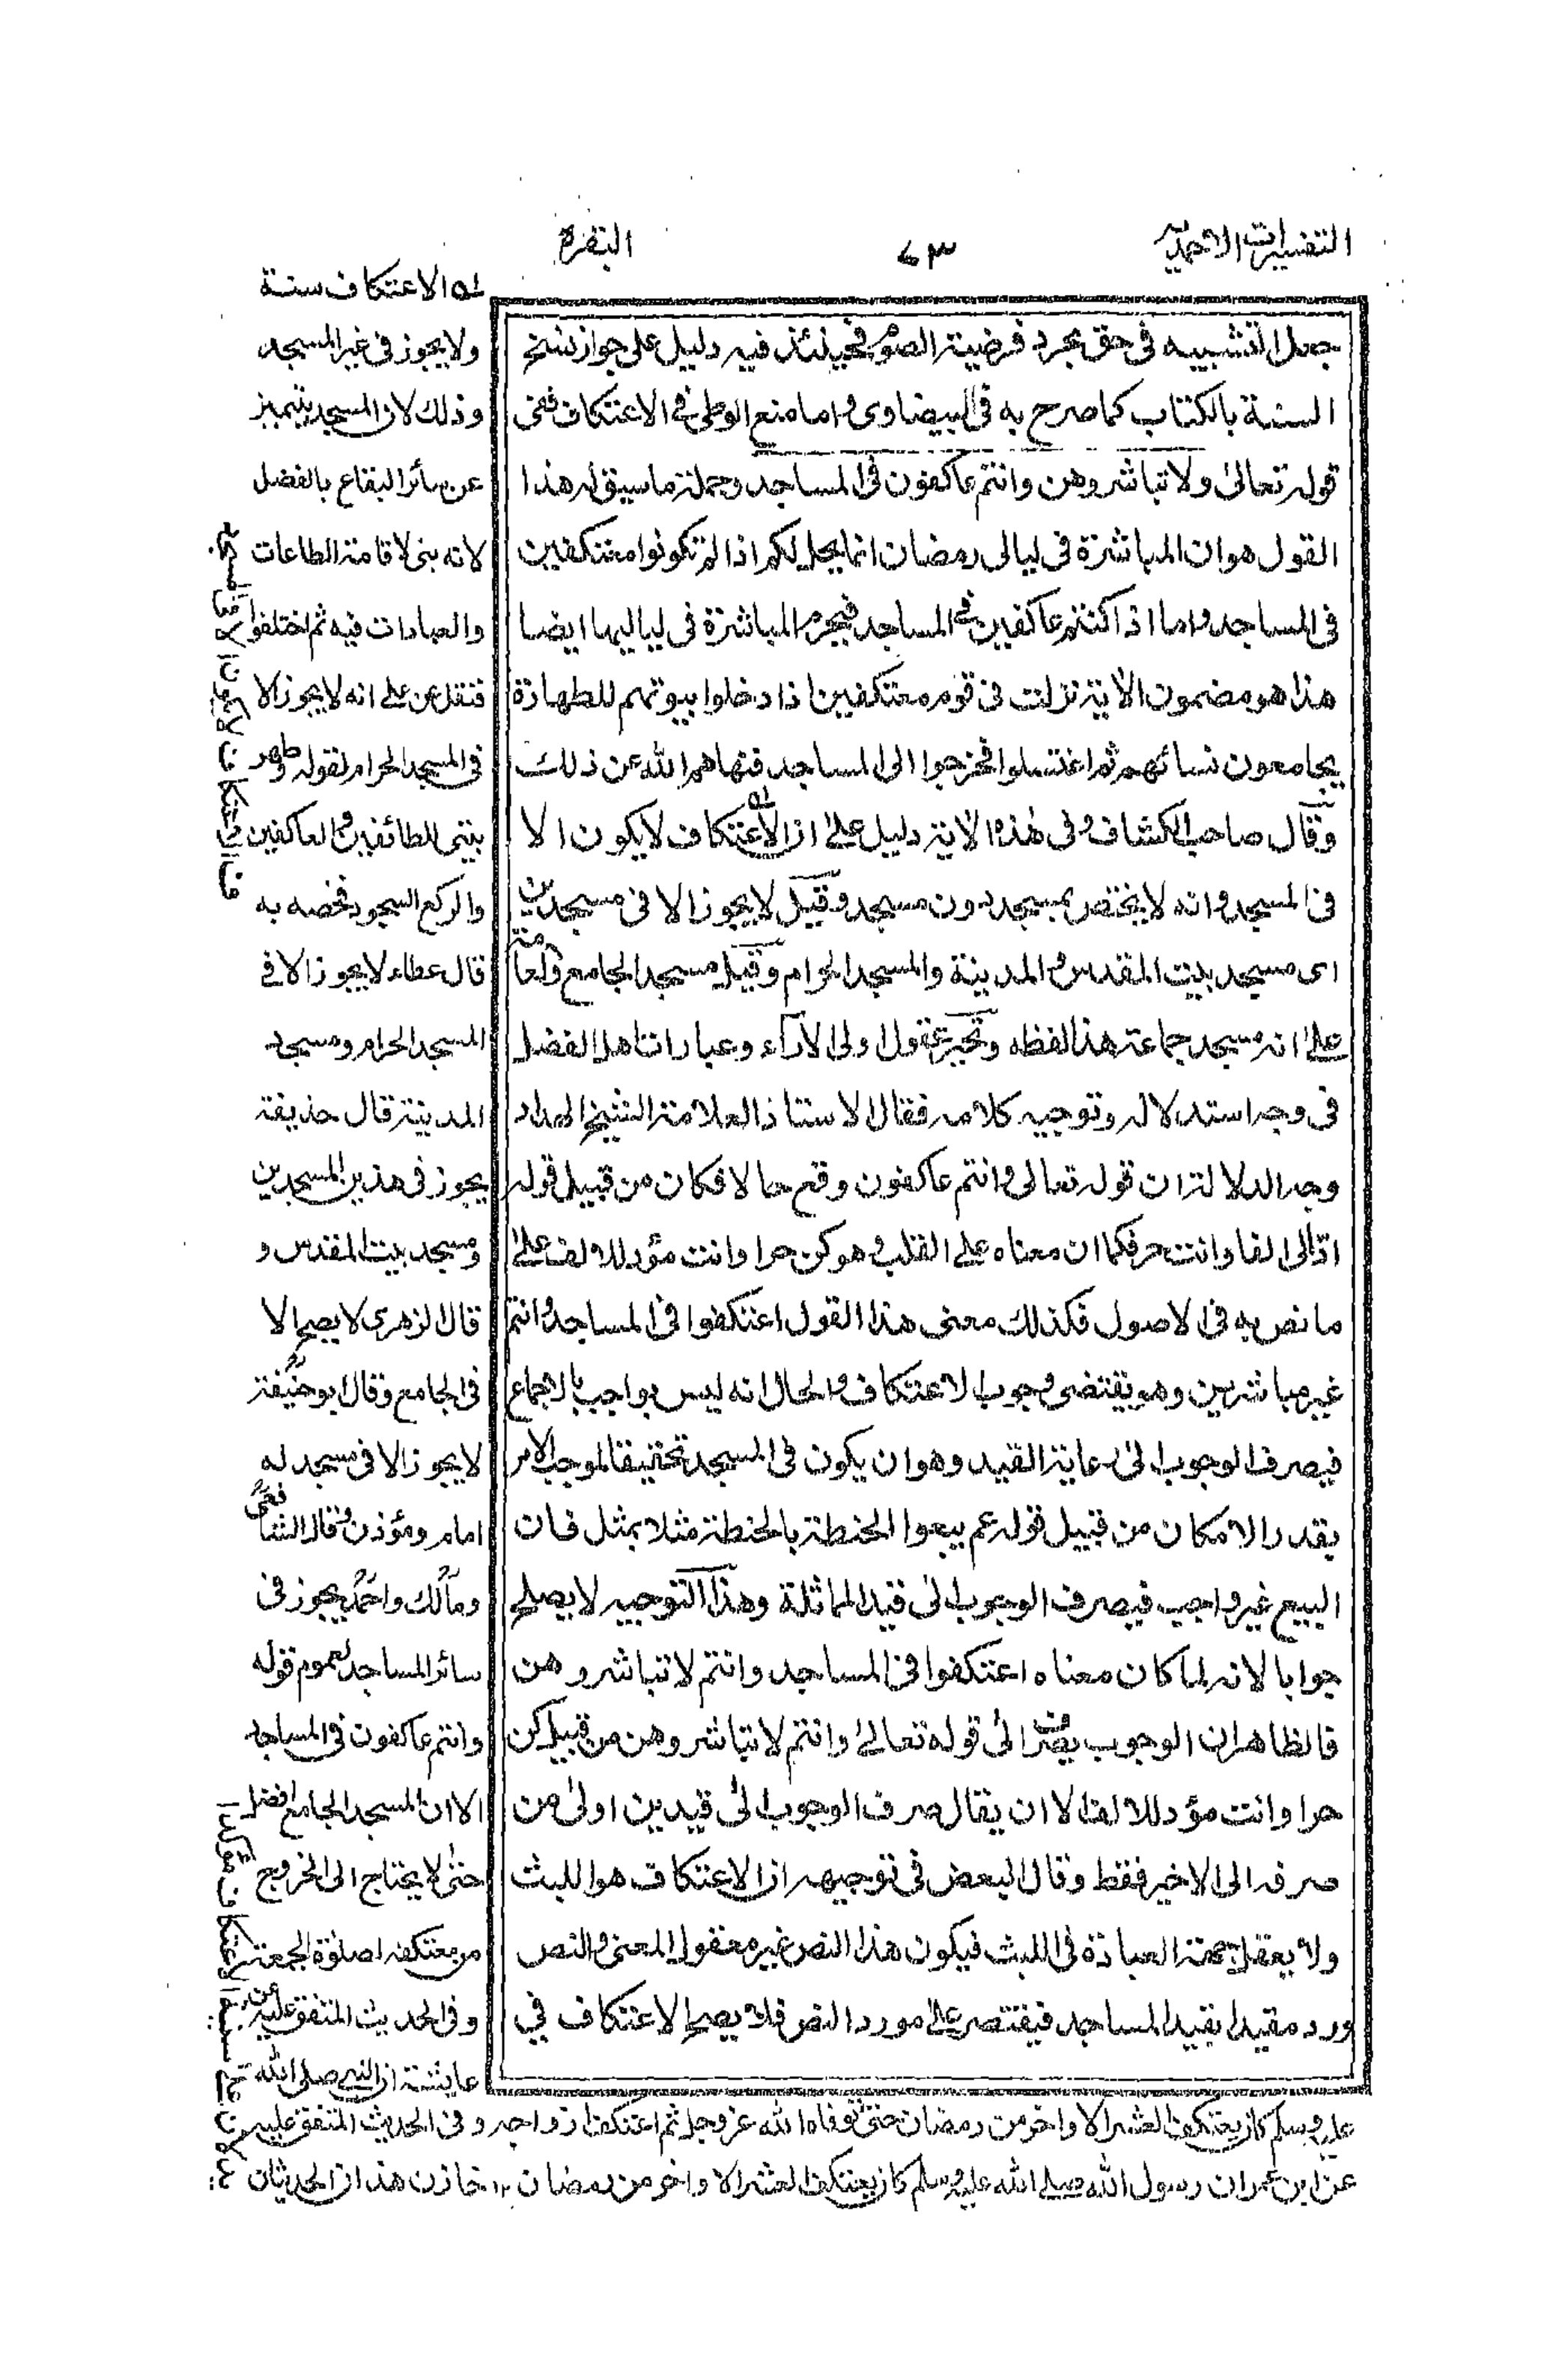 التفسيرات الاحمدية
٧٣
البقرة
جعل التشبيه فى حق مجرد فرضية الصوم فحينئذ فيه دليل على جواز نسخ
السنة بالكتاب كما صرح به فى البيضاوى واما منع الوطى فى الاعتكاف ففى
قوله تعالىٰ ولا تباشروهن وانتم عاكفون فى المساجد وجملة ما سيق له هذا
القول هو ان المباشرة فى ليالى رمضان انما يحل لكم اذا لم تكونوا معتكفين
فى المساجد واما اذا كنتم عاكفين فى المساجد فيحرم المباشرة فى لياليها ايضا
هذا هو مضمون الاية نزلت فى قوم معتكفين اذا دخلوا بيوتهم للطهارة
يجامعون نسائهم ثم اغتسلوا فخرجوا الى المساجد فنهاهم الله عن ذلك
وقال صاحب الكشاف وفى هٰذه الاية دليل علىٰ ان الاعتكاف لا يكون الا
فى المسجد وانه لا يختص بمسجد دون مسجد وقيل لا يجوز الا فى مسجد نبى
اى مسجد بيت المقدس والمدينة والمسجد الحرام وقيل مسجد الجامع والعامة
علىٰ انه مسجد جماعة هذا لفظه وتحير عقول اولى الاراء وعبارات اهل الفضل
فى وجه استدلاله وتوجيه كلامه فقال الاستاذ العلامة الشيخ الهداد
وجه الدلالة ان قوله تعالى وانتم عاكفون وقع حالا فكان من قبيل قوله
ادّ الى الفا وانت حر فكما ان معناه على القلب وهو كن حرا وانت مؤد للالف علىٰ
ما نص به فى الاصول فكذلك معنى هذا القول اعتكفوا فى المساجد وانتم
غير مباشرين وهو يقتضى وجوب الاعتكاف والحال انه ليس بواجب بالاجماع
فيصرف الوجوب الىٰ رعاية القيد وهو ان يكون فى المسجد تحقيقا لموجب الامر
بقدر الامكان من قبيل قوله عم بيعوا الحنطة بالحنطة مثلا بمثل فان
البيع غير واجب فيصرف الوجوب الىٰ قيد المماثلة وهذا التوجيه لا يصلح
جوابا لانه لما كان معناه اعتكفوا فى المساجد وانتم لا تباشروهن
فالظاهر ان الوجوب يصرف الىٰ قوله تعالىٰ وانتم لا تباشروهن من قبيل كن
حرا وانت مؤد للالف الا ان يقال صرف الوجوب الىٰ قيدين اولىٰ من
صرفه الى الاخير فقط وقال البعض فى توجيهه ان الاعتكاف هو اللبث
ولا يعقل جهة العبادة فى اللبث فيكون هذا النص غير معقول المعنى والنص
ورد مقيدا بقيد المساجد فيقتصر علىٰ مورد النص فلا يصح الاعتكاف في
له الاعتكاف سنة
ولا يجوز فى غير المسجد
وذلك لان المسجد يتميز
عن سائر البقاع بالفضل
لانه بنى لاقامة الطاعات
والعبادات فيه ثم اختلفوا
فنقل عن على انه لا يجوز الا
فى المسجد الحرام لقوله وطهر
بيتى للطائفين والعاكفين
والركع السجود فخصه به
قال عطاء لا يجوز الا فى
المسجد الحرام ومسجد
المدينة قال حذيفة
يجوز فى هذين المسجدين
ومسجد بيت المقدس و
قال الزهرى لا يصح الا
فى الجامع وقال ابو حنيفة
لا يجوز الا فى مسجد له
امام ومؤذن وقال الشافعى
ومالك واحمد يجوز فى
سائر المساجد لعموم قوله
وانتم عاكفون فى المساجد
الا ان المسجد الجامع افضل
حتىٰ لا يحتاج الى الخروج
من معتكفه لصلوٰة الجمعة
وفى الحديث المتفق عليه عن
عايشة ان النبى صلى الله
عليه وسلم كان يعتكف العشر الاواخر من رمضان حتىٰ توفاه الله عز وجل ثم اعتكف ازواجه وفى الحديث المتفق عليه
عن ابن عمر ان رسول الله صلے الله عليه وسلم كان يعتكف العشر الاواخر من رمضان ١٢ خازن هذان الحديثان